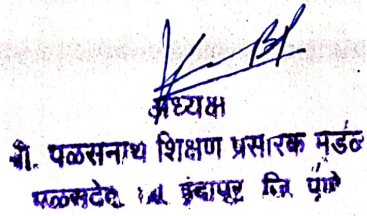 अध्यक्ष
श्री. पळसनाथ शिक्षण प्रसारक मंडळ
पळसदेव ता इंदापूर जि पुणे